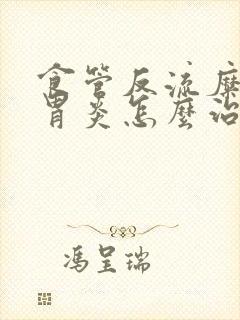 食管反流糜
胃炎怎麼治
馮呈瑞